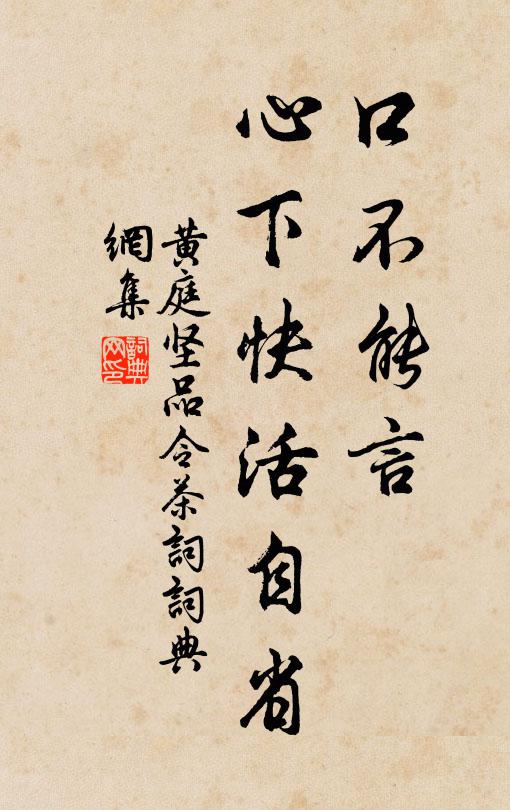 口不能言
心下快活自省
黄庭坚品令茶詞詞典
網集
詞典
网印